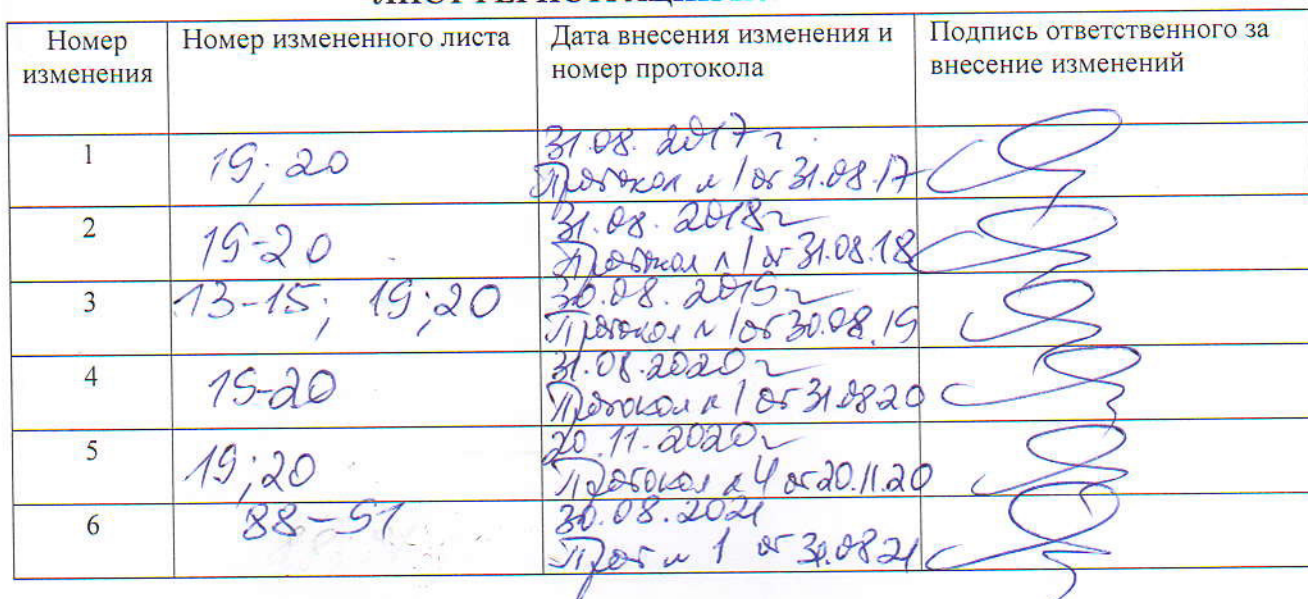 Номер изменения Номер измененного листа Дата внесения изменения и номер протокола Подпись ответственного за внесение изменений
1 19; 20 31.08.2017 г.
Протокол № 1 от 31.08.17
2 19-20 31.08.2018 г
Протокол № 1 от 31.08.18
3 13-15; 19;20 30.08.2019 г
Протокол № 1 от 30.08.19
4 19-20 31.08.2020 г
Протокол № 1 от 31.08.20
5 19;20 20.11.2020 г
Протокол № 4 от 20.11.20
6 88-91 30.08.2021
Прот № 1 от 30.08.21